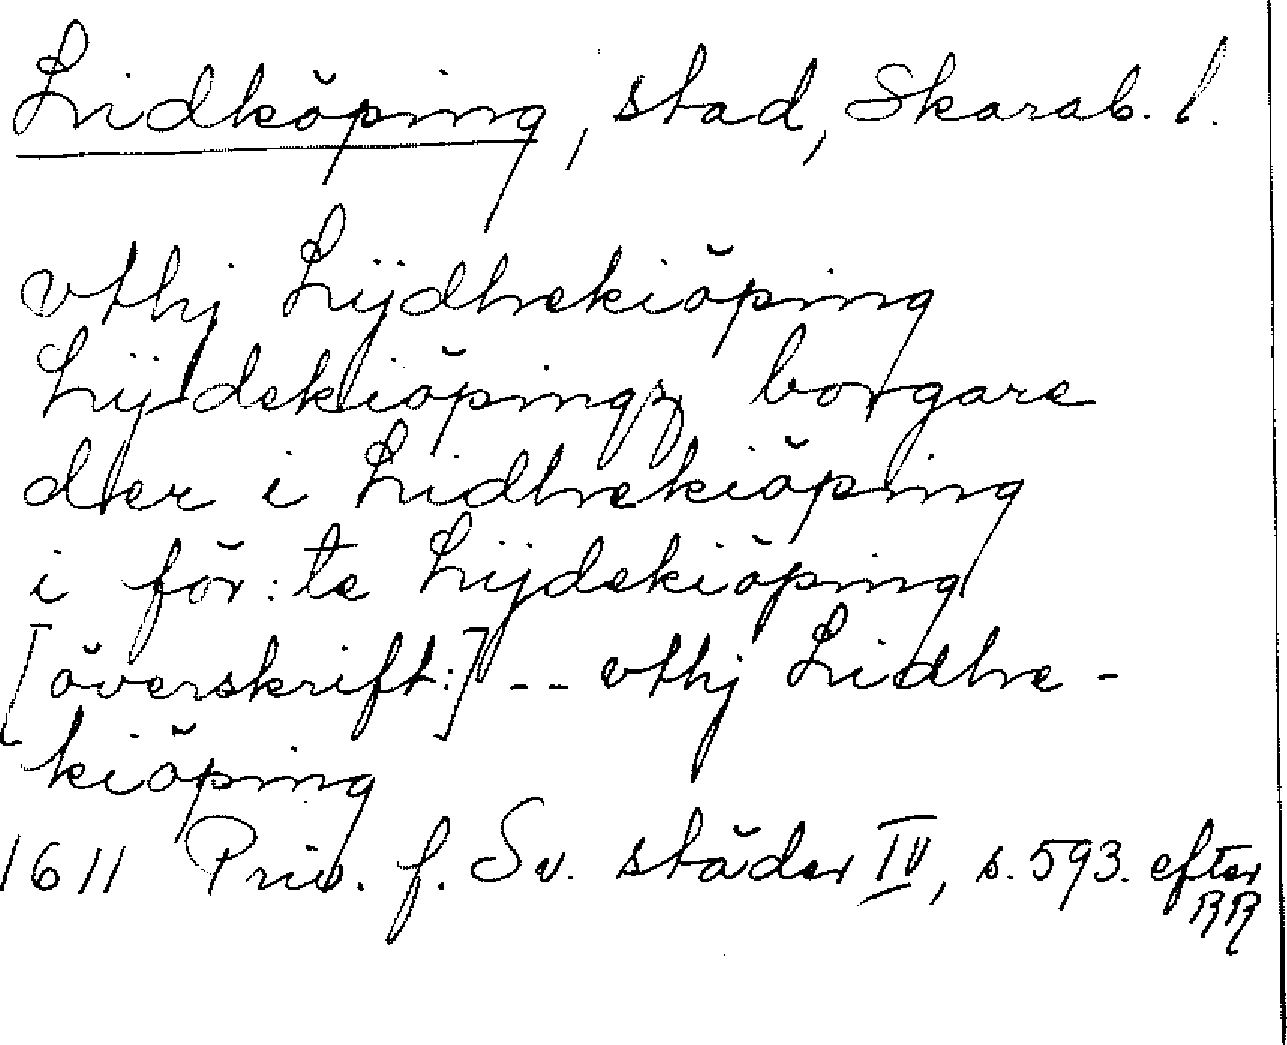 Lidköping, stad, Skarab. l.
vthj Lijdhekiöping
Lijdekiöpingz borgare
der i Lidhekiöping
i för:te Lijdekiöping
[överskrift:] -- vthj Lidhe-
kiöping
1611 Priv. f. Sv. städer IV, s. 593. efter
RR